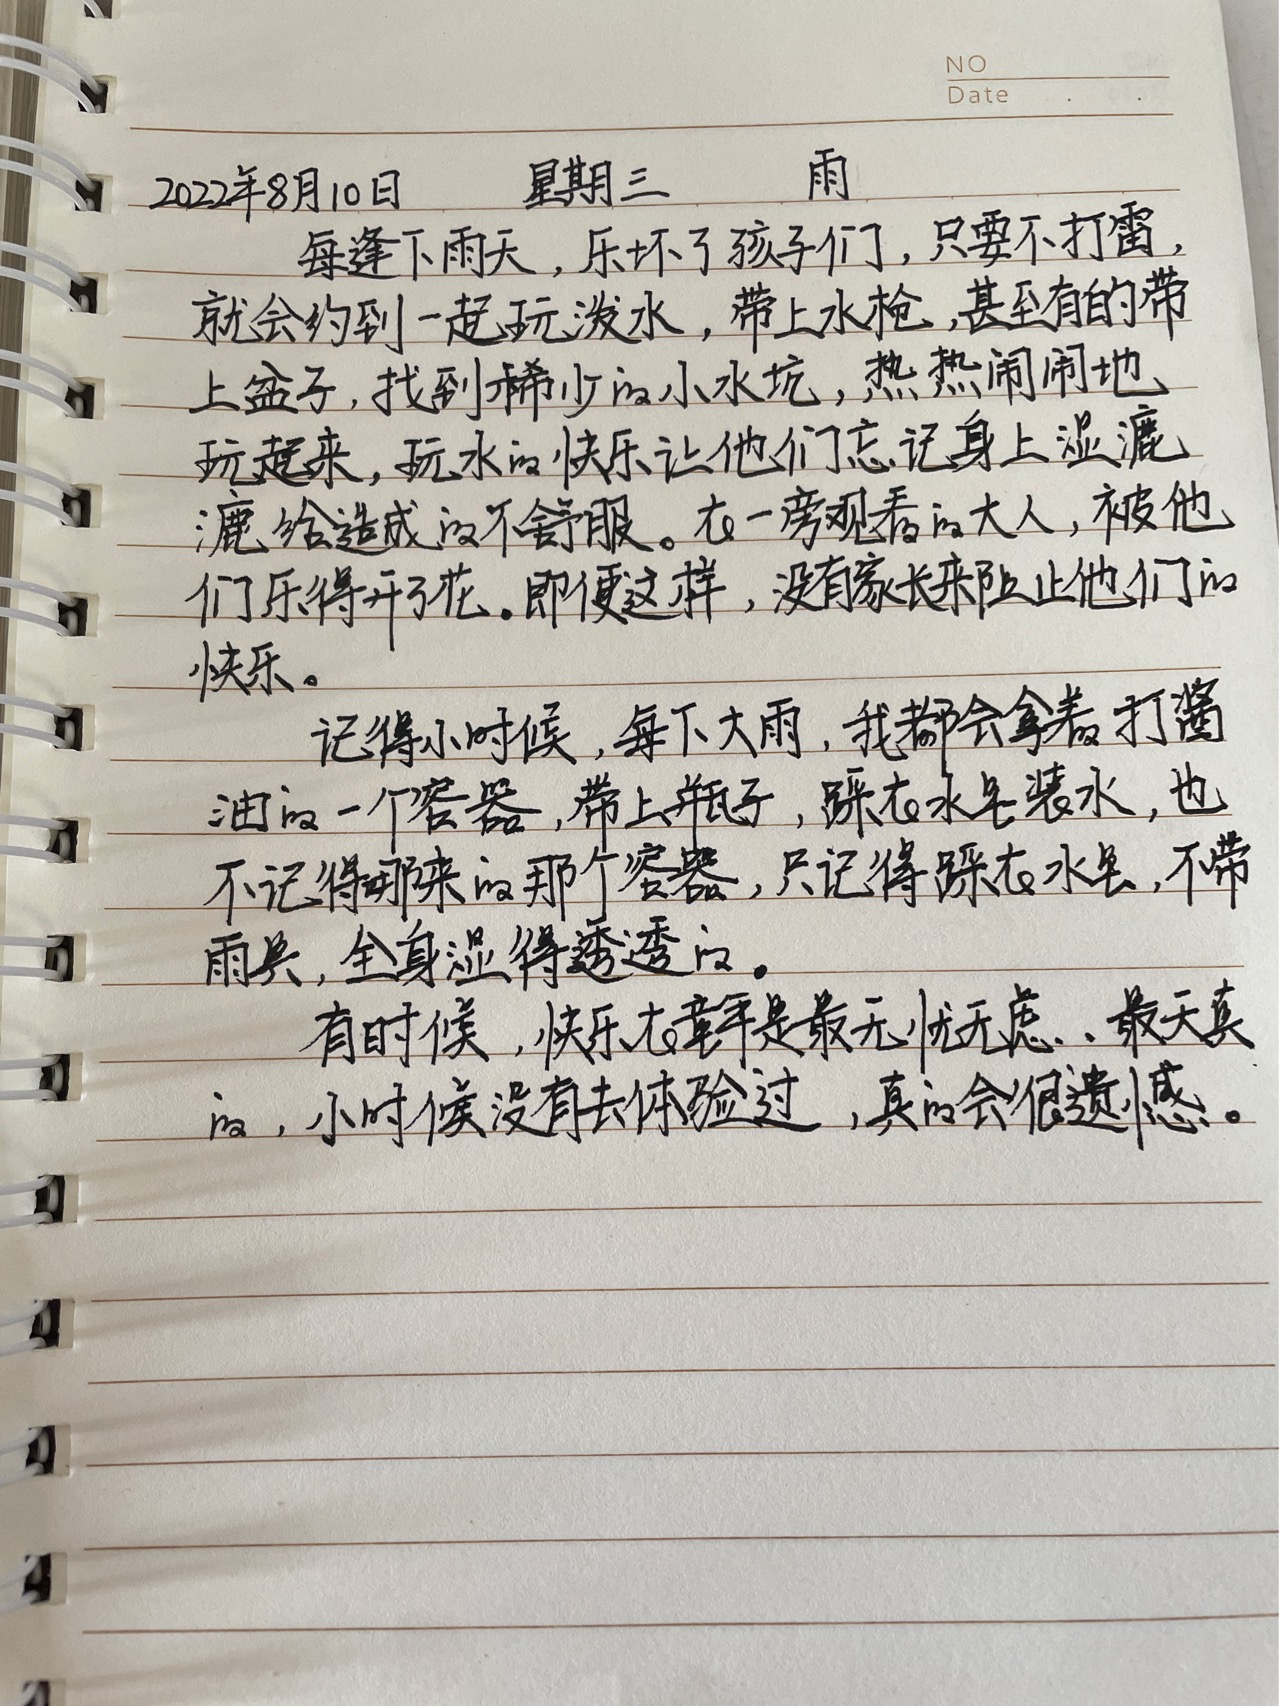 NO
Date . .
2022年8月10日 星期三 雨
每逢下雨天，乐坏了孩子们，只要不打雷，
就会约到一起玩泼水，带上水枪，甚至有的带
上盆子，找到稀少的小水坑，热热闹闹地
玩起来，玩水的快乐让他们忘记身上湿漉
漉给造成的不舒服。在一旁观看的大人，被他
们乐得开了花。即便这样，没有家长来阻止他们的
快乐。
记得小时候，每下大雨，我都会拿着打酱
油的一个容器，带上瓶子，踩在水里装水，也
不记得哪来的那个容器，只记得踩在水里，不带
雨具，全身湿得透透的。
有时候，快乐在童年是最无忧无虑、最天真
的，小时候没有去体验过，真的会很遗憾。